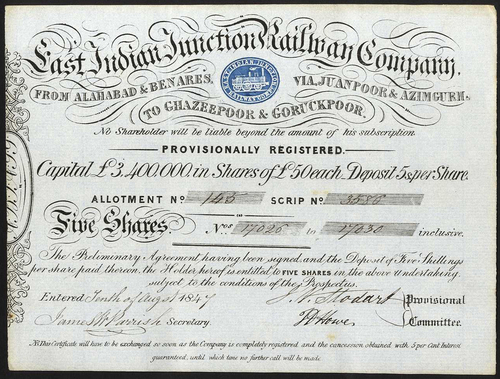 East Indian Junction Railway Company.
EAST INDIAN JUNCTION
RAILWAY COMPY
FROM ALAHABAD & BENARES, VIA, JUANPOOR & AZIMGURH,
TO GHAZEEPOOR & GORUCKPOOR.
No Shareholder will be liable beyond the amount of his subscription.
PROVISIONALLY REGISTERED.
Capital £3,400,000. in Shares of £50 each, Deposit 5s per Share.
ALLOTMENT No 145 SCRIP No 3585
Five Shares. Nos 17026 to 17030 inclusive.
The Preliminary Agreement having been signed, and the Deposit of Five Shillings
per share paid thereon, the Holder hereof is entitled to FIVE SHARES in the above Undertaking,
subject to the conditions of the Prospectus.
Entered Tenth of Augst 1847
J. W. Stodart Provisional
James W Parrish Secretary.
Howe Committee.
N.B. This Certificate will have to be exchanged so soon as the Company is completely registered and the concession obtained with 5 per Cent Interest
guaranteed, until which time no further call will be made.